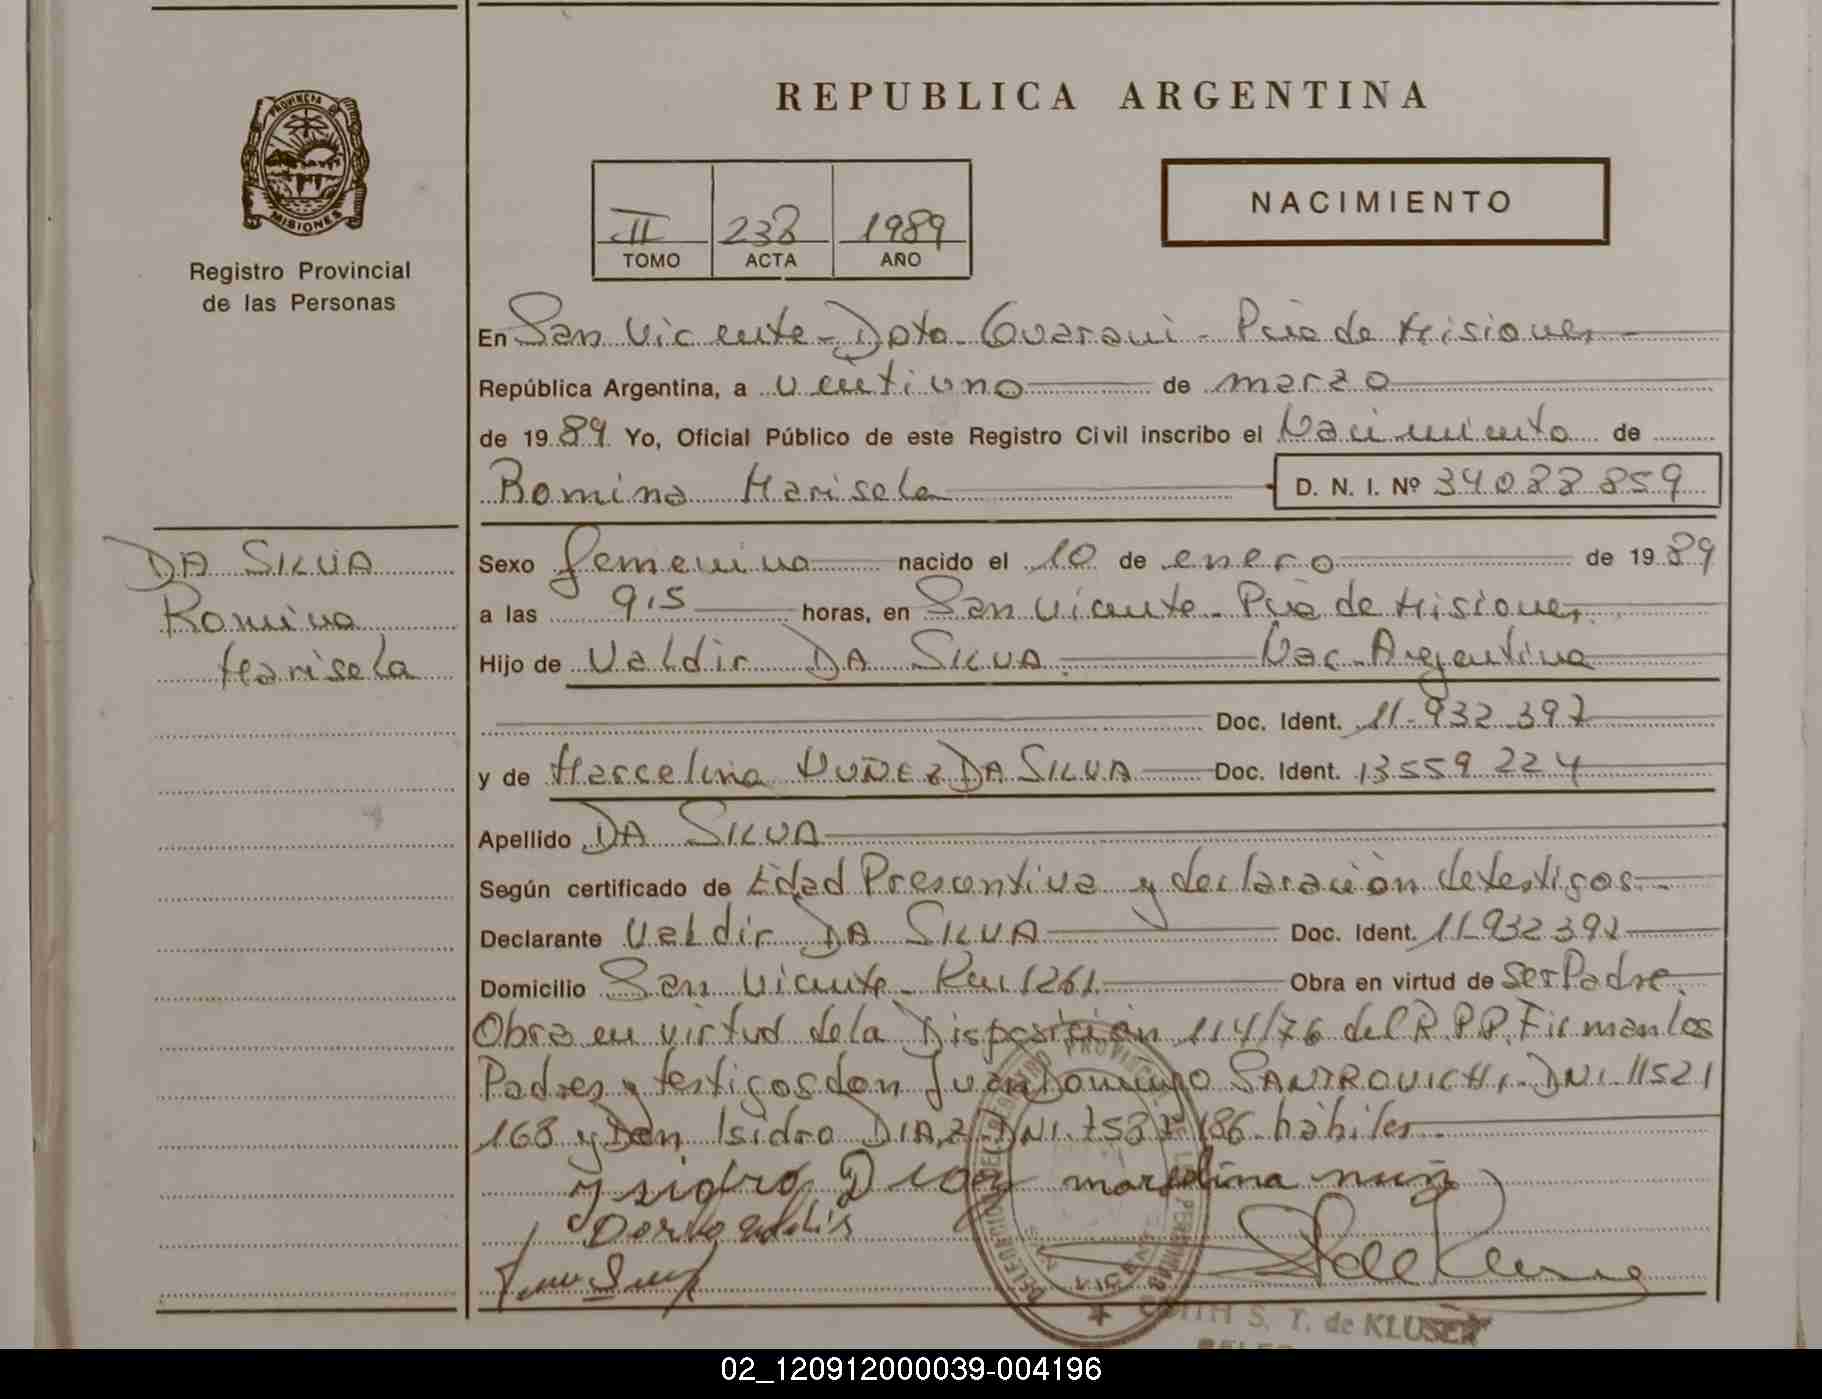 PROVINCIA DE
MISIONES
Registro Provincial
de las Personas
REPUBLICA ARGENTINA
II 238 1989
TOMO ACTA AÑO
NACIMIENTO
En San Vicente - Dpto. Guarani - Pcia de Misiones
República Argentina, a veintiuno de marzo
de 1989 Yo, Oficial Público de este Registro Civil inscribo el Nacimiento de
Romina Marisela D. N. I. Nº 34088859
DA SILVA
Romina
Marisela
Sexo femenino nacido el 10 de enero de 1989
a las 9,15 horas, en San Vicente - Pcia de Misiones
Hijo de Valdir DA SILVA Nac. Argentina
Doc. Ident. 11.932.397
y de Marcelina NUÑEZ DA SILVA Doc. Ident. 13559224
Apellido DA SILVA
Según certificado de Edad Presentiva y declaración de testigos
Declarante Valdir DA SILVA Doc. Ident. 11.932.397
Domicilio San Vicente - Km 1261 Obra en virtud de ser Padre.
Obra en virtud de la Disposición 114/76 del R.P.P. Firman los
Padres y testigos don Juan Domingo SANTROVICH, DNI. 11521
168 y Don Isidro DIAZ DNI. 186 hábiles
Ysidro Diaz marselina nuñ
S. T. de KLUSER
02_120912000039-004196